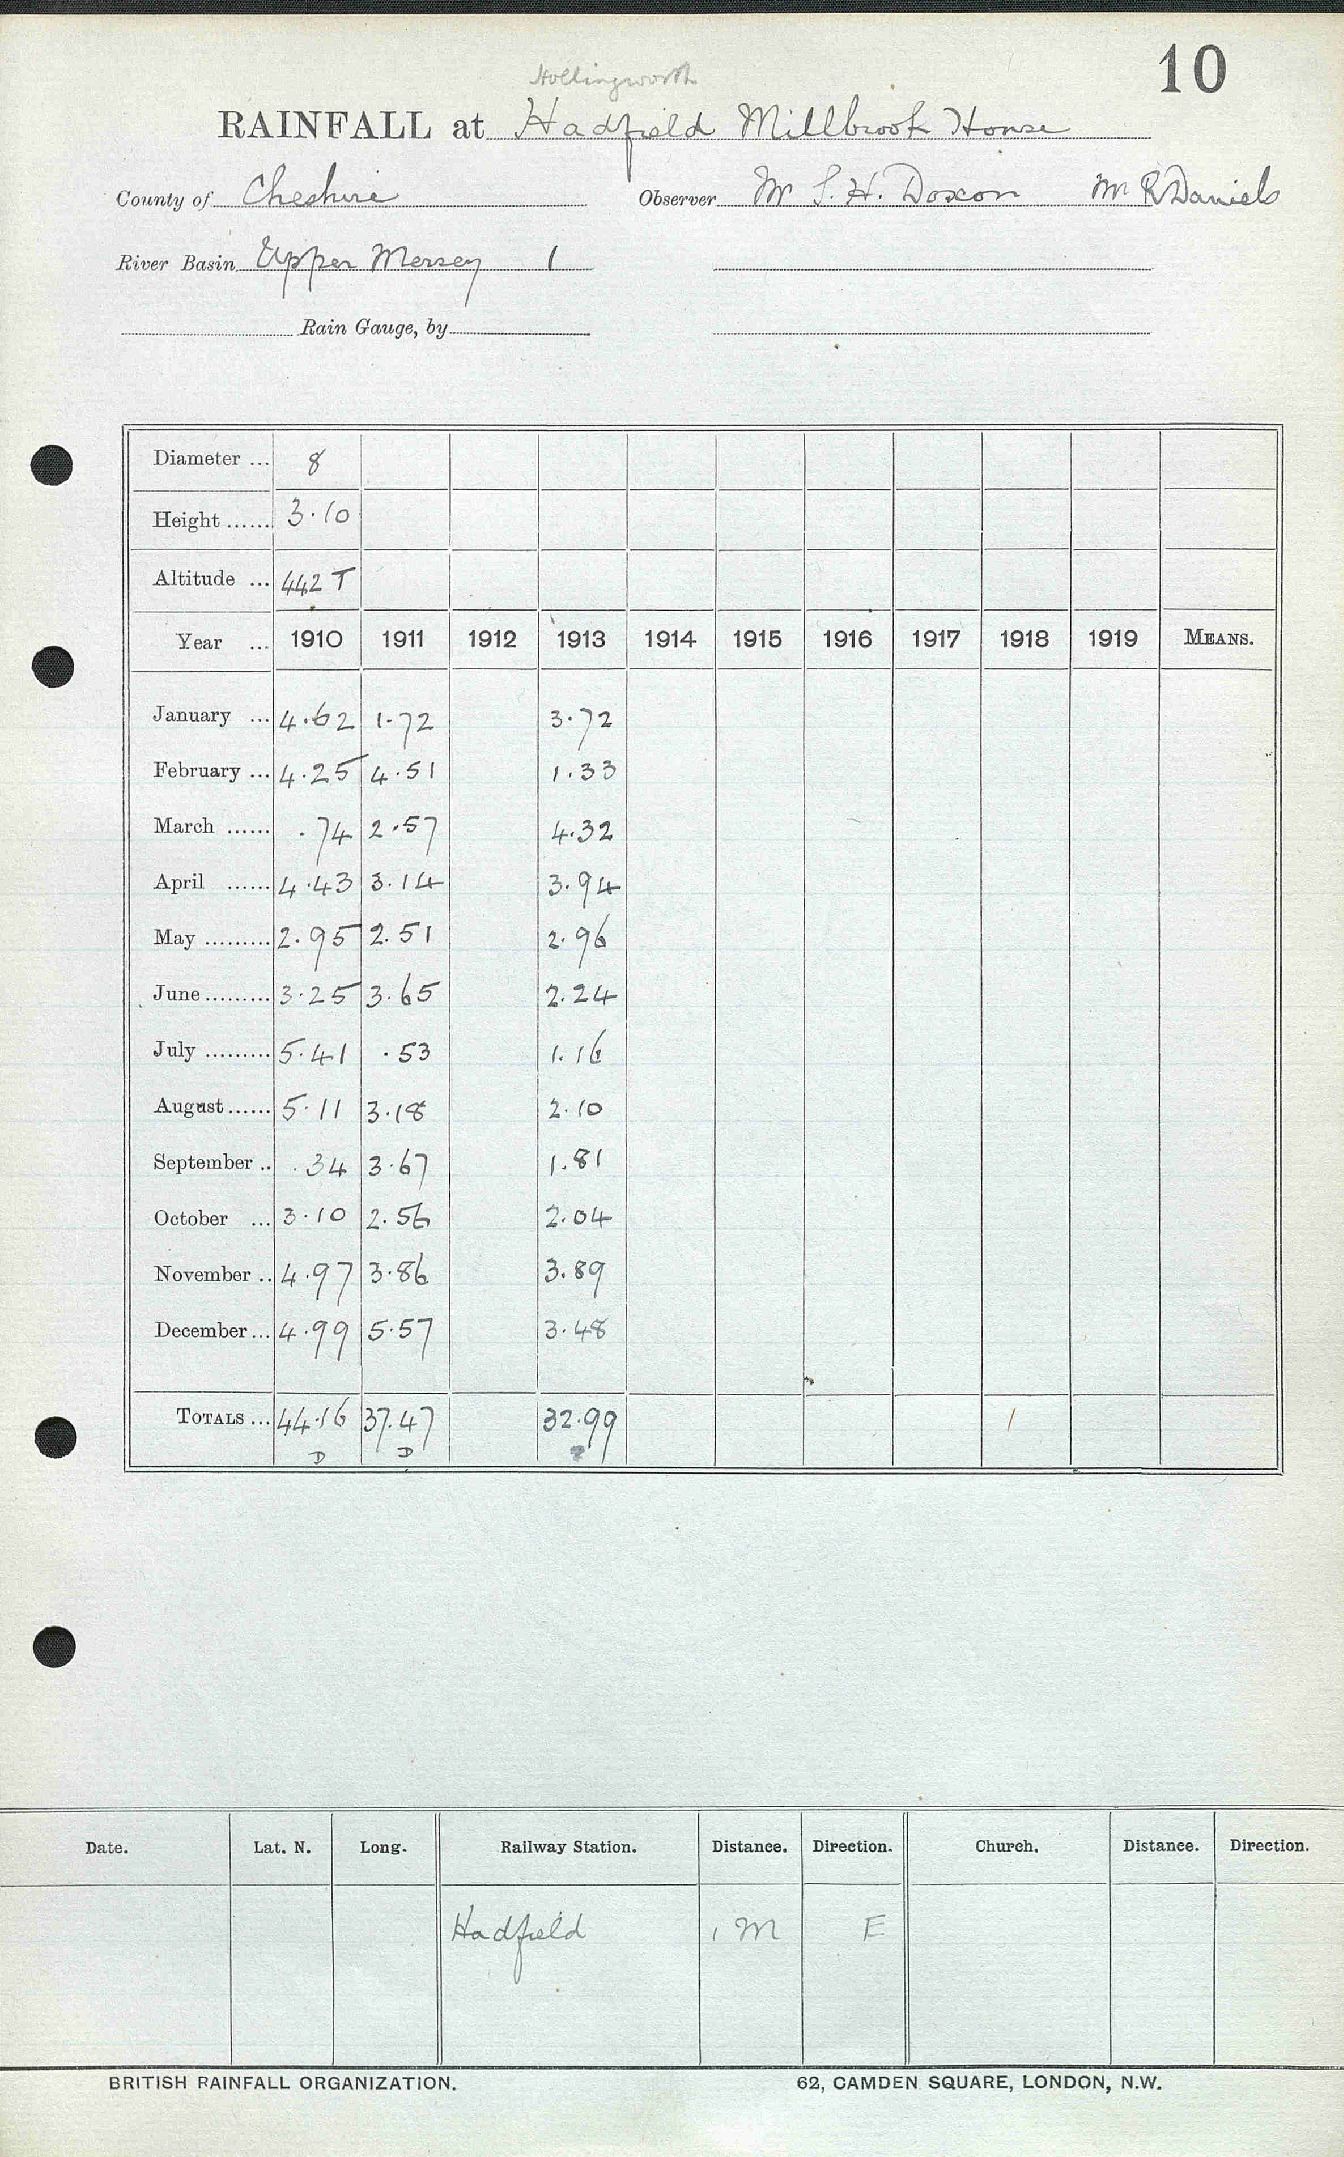 10
Hollingworth
RAINFALL at Hadfield Millbrook House
County of Cheshire Observer Mr S. H. Doxon Mr R Daniels
River Basin Upper Mersey 1
Rain Gauge, by
Diameter ... 8
Height ...... 3.10
Altitude ... 442 T
Year ... 1910 1911 1912 1913 1914 1915 1916 1917 1918 1919 MEANS.
January ... 4.62 1.72 3.72
February ... 4.25 4.51 1.33
March ...... .74 2.57 4.32
April ...... 4.43 3.14 3.94
May ......... 2.95 2.51 2.96
June ......... 3.25 3.65 2.24
July ......... 5.41 .53 1.16
August ...... 5.11 3.18 2.10
September .. .34 3.67 1.81
October ... 3.10 2.56 2.04
November .. 4.97 3.86 3.89
December ... 4.99 5.57 3.48
TOTALS ... 44.16 37.47 32.99
D D
Date. Lat. N. Long. Railway Station. Distance. Direction. Church. Distance. Direction.
Hadfield 1 M E
BRITISH RAINFALL ORGANIZATION. 62, CAMDEN SQUARE, LONDON, N.W.